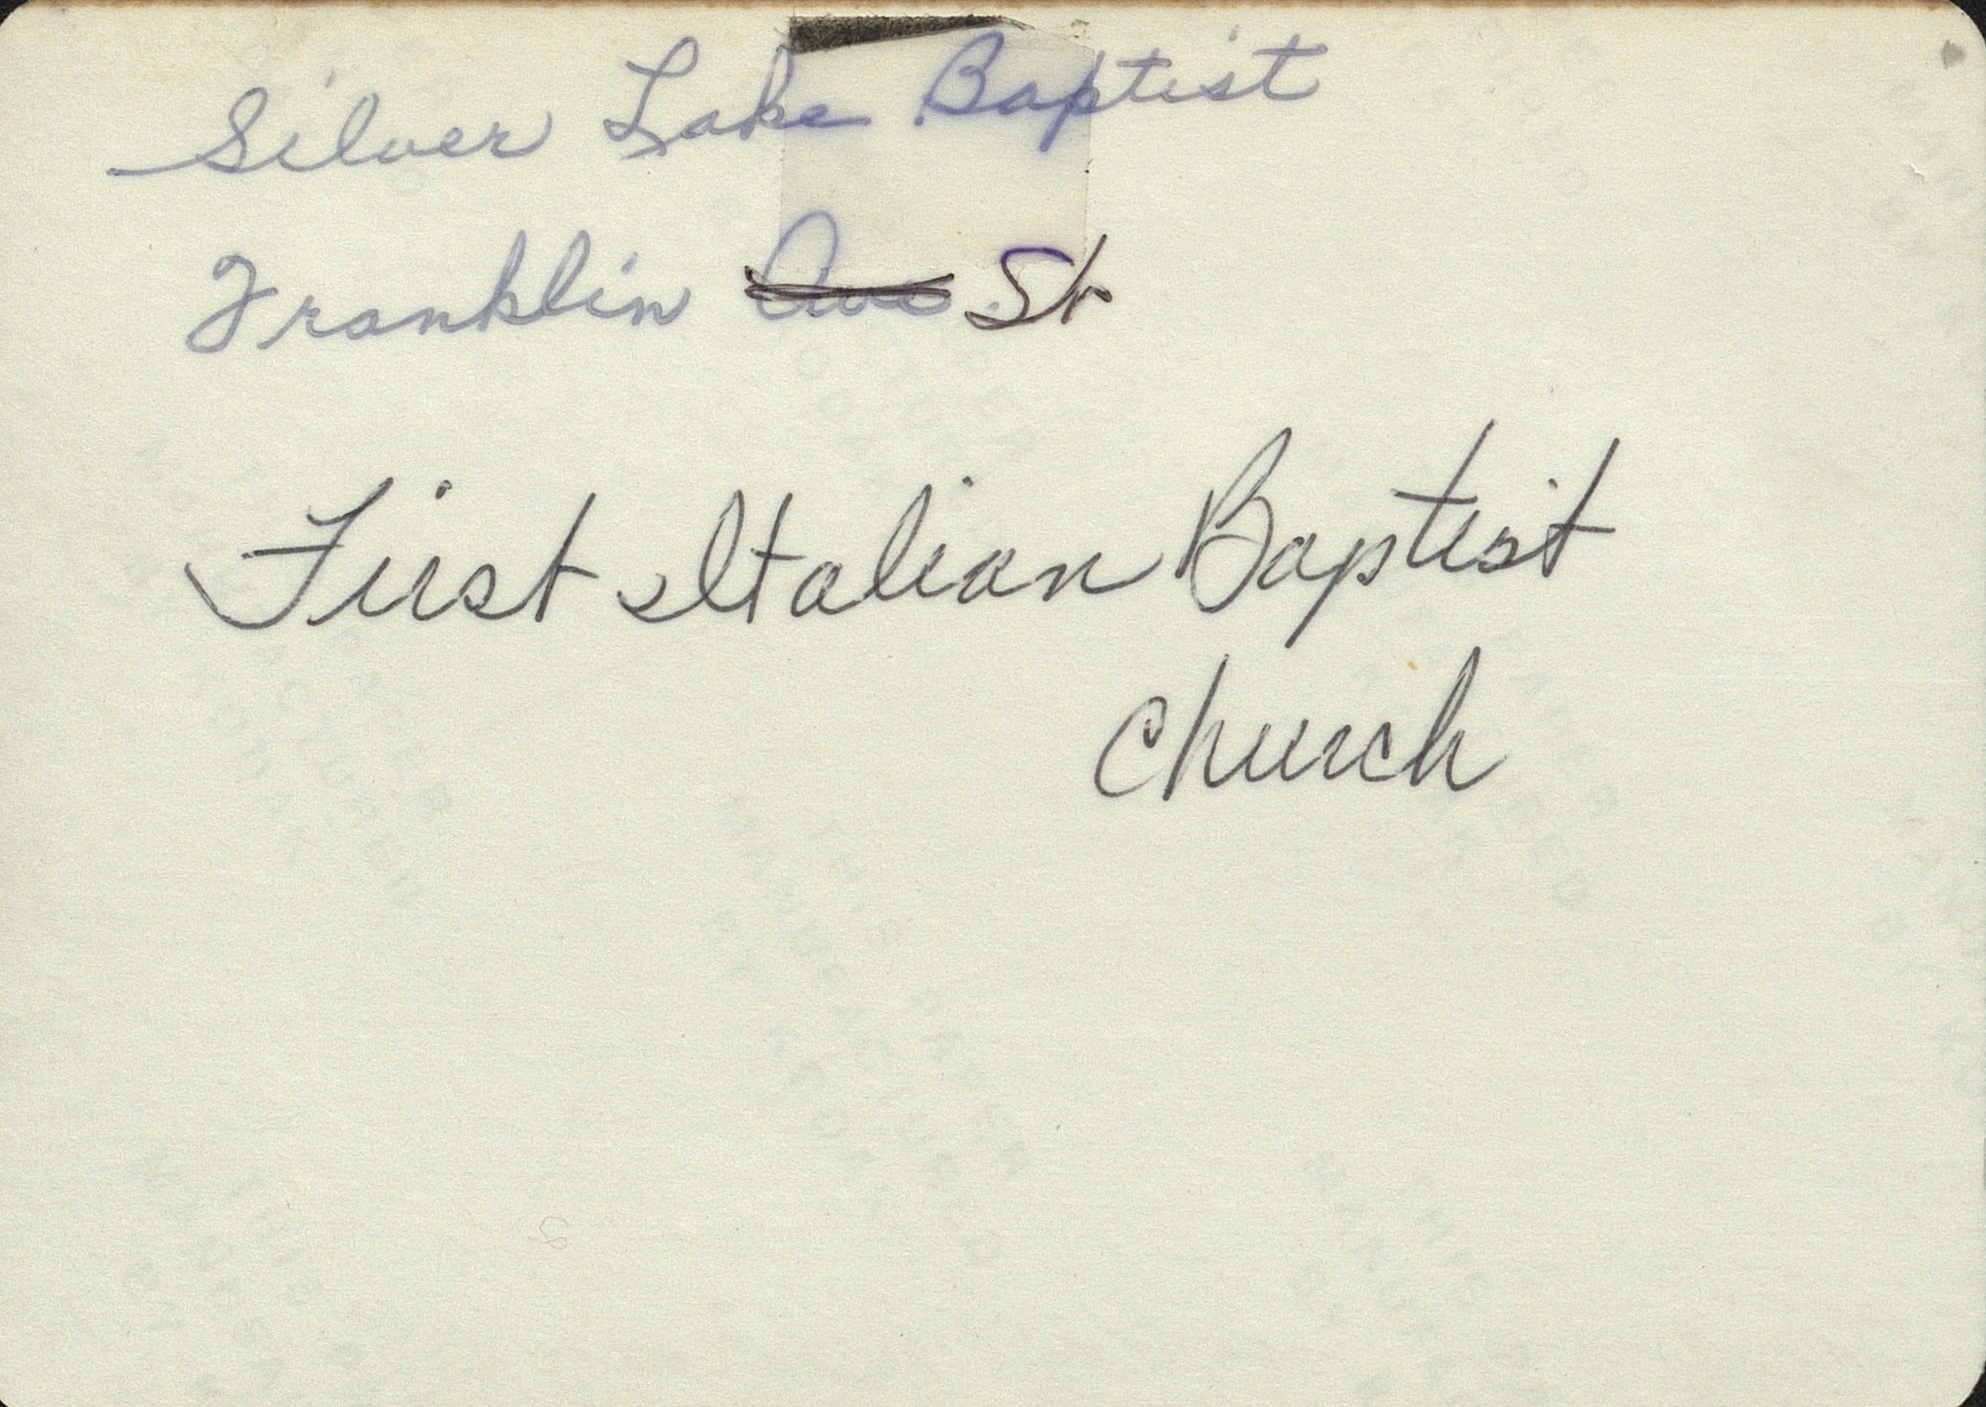 Silver Lake Baptist
Franklin Ave St
First Italian Baptist
Church